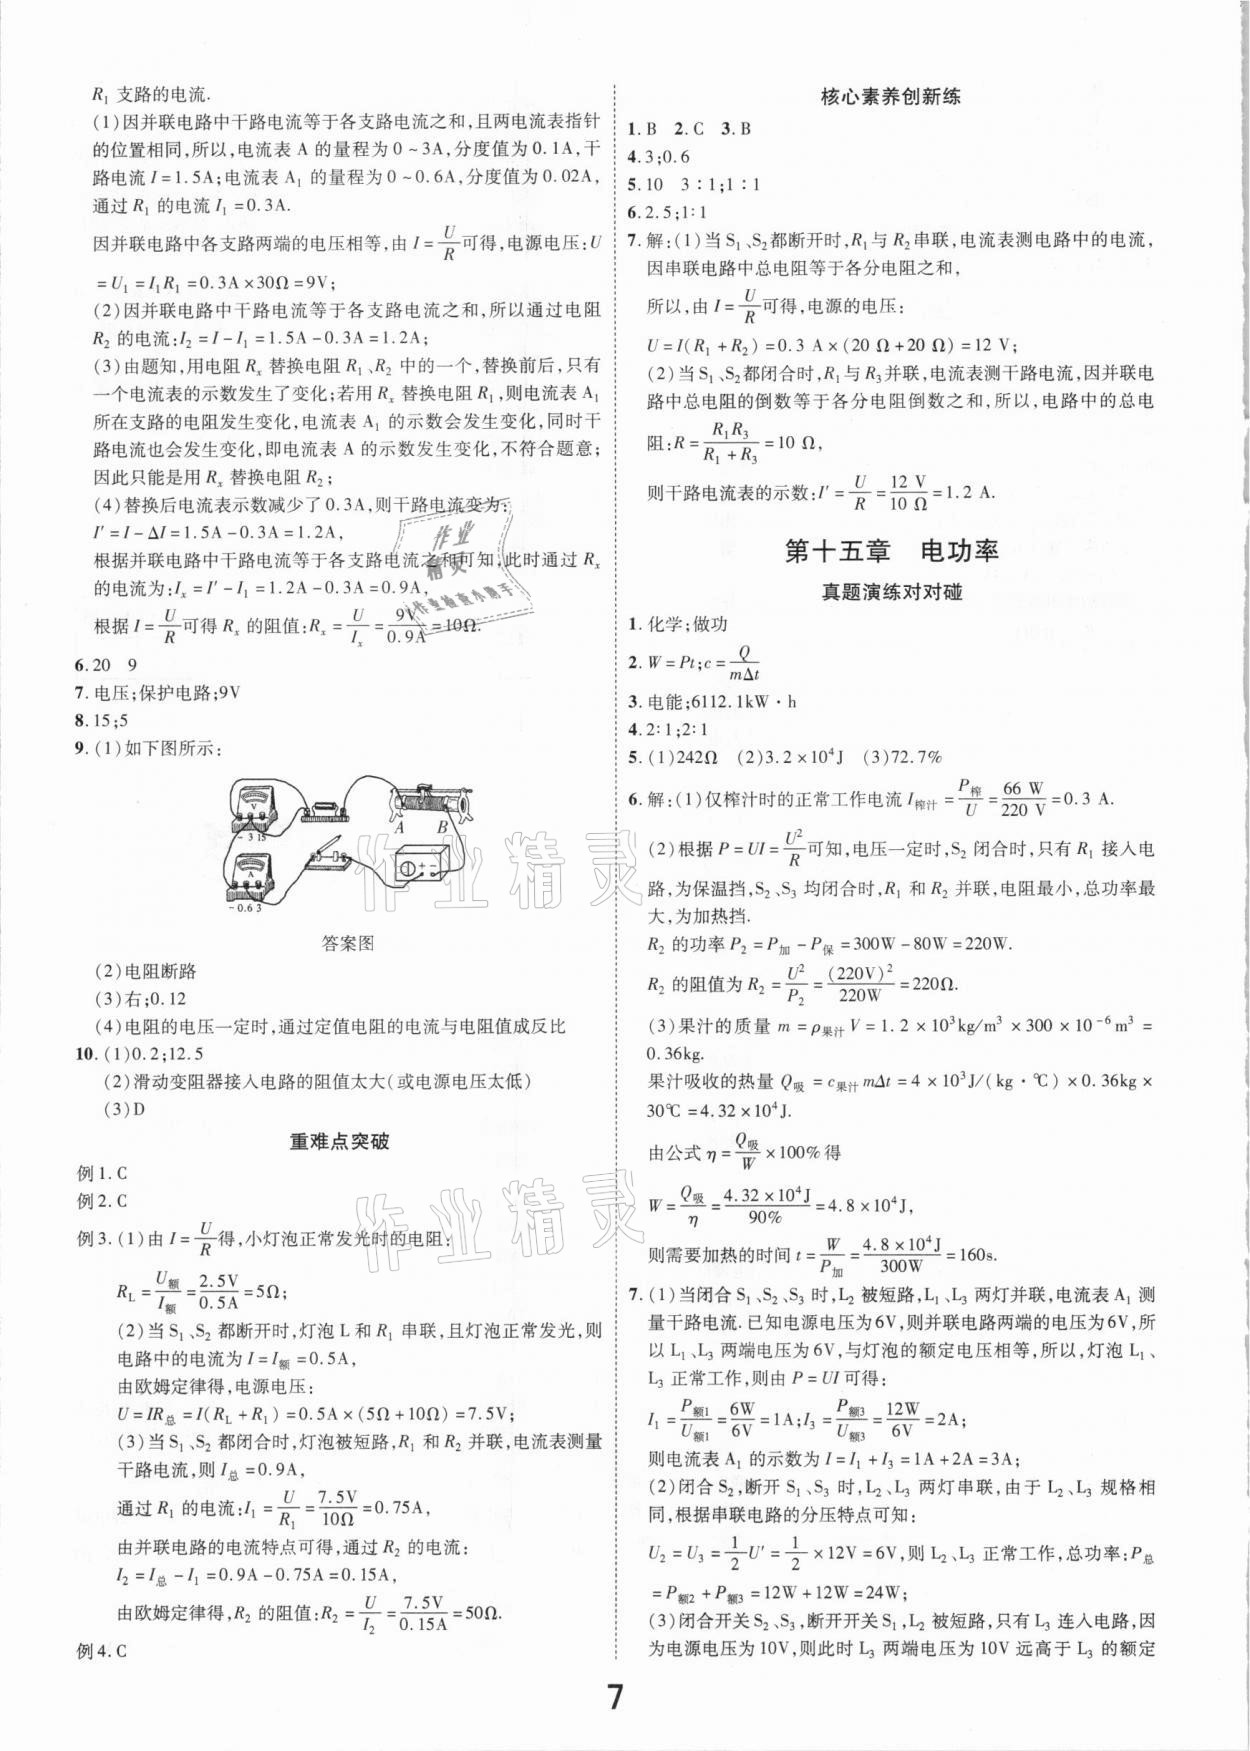 R₁ 支路的电流.
(1)因并联电路中干路电流等于各支路电流之和,且两电流表指针
的位置相同,所以,电流表 A 的量程为 0～3A,分度值为 0.1A,干
路电流 I=1.5A;电流表 A₁ 的量程为 0～0.6A,分度值为 0.02A,
通过 R₁ 的电流 I₁=0.3A.
因并联电路中各支路两端的电压相等,由 I=U/R可得,电源电压:U
=U₁=I₁R₁=0.3A×30Ω=9V;
(2)因并联电路中干路电流等于各支路电流之和,所以通过电阻
R₂ 的电流:I₂=I-I₁=1.5A-0.3A=1.2A;
(3)由题知,用电阻 Rₓ 替换电阻 R₁、R₂ 中的一个,替换前后,只有
一个电流表的示数发生了变化;若用 Rₓ 替换电阻 R₁,则电流表 A₁
所在支路的电阻发生变化,电流表 A₁ 的示数会发生变化,同时干
路电流也会发生变化,即电流表 A 的示数发生变化,不符合题意;
因此只能是用 Rₓ 替换电阻 R₂;
(4)替换后电流表示数减少了 0.3A,则干路电流变为:
I′=I-ΔI=1.5A-0.3A=1.2A,
根据并联电路中干路电流等于各支路电流之和可知,此时通过 Rₓ
的电流为:Iₓ=I′-I₁=1.2A-0.3A=0.9A,
根据 I=U/R可得 Rₓ 的阻值:Rₓ=U/Iₓ=9V/0.9A=10Ω.
6.20 9
7.电压;保护电路;9V
8.15;5
9.(1)如下图所示:
V
- 3 15
A
- 0.6 3
A B
答案图
(2)电阻断路
(3)右;0.12
(4)电阻的电压一定时,通过定值电阻的电流与电阻值成反比
10.(1)0.2;12.5
(2)滑动变阻器接入电路的阻值太大(或电源电压太低)
(3)D
重难点突破
例1.C
例2.C
例3.(1)由 I=U/R得,小灯泡正常发光时的电阻:
R_L=U额/I额=2.5V/0.5A=5Ω;
(2)当 S₁、S₂ 都断开时,灯泡 L 和 R₁ 串联,且灯泡正常发光,则
电路中的电流为 I=I额=0.5A,
由欧姆定律得,电源电压:
U=IR总=I(R_L+R₁)=0.5A×(5Ω+10Ω)=7.5V;
(3)当 S₁、S₂ 都闭合时,灯泡被短路,R₁ 和 R₂ 并联,电流表测量
干路电流,则 I总=0.9A,
通过 R₁ 的电流:I₁=U/R₁=7.5V/10Ω=0.75A,
由并联电路的电流特点可得,通过 R₂ 的电流:
I₂=I总-I₁=0.9A-0.75A=0.15A,
由欧姆定律得,R₂ 的阻值:R₂=U/I₂=7.5V/0.15A=50Ω.
例4.C
核心素养创新练
1.B 2.C 3.B
4.3;0.6
5.10 3∶1;1∶1
6.2.5;1∶1
7.解:(1)当 S₁、S₂都断开时,R₁与 R₂串联,电流表测电路中的电流,
因串联电路中总电阻等于各分电阻之和,
所以,由 I=U/R可得,电源的电压:
U=I(R₁+R₂)=0.3 A×(20 Ω+20 Ω)=12 V;
(2)当 S₁、S₂都闭合时,R₁与 R₃并联,电流表测干路电流,因并联电
路中总电阻的倒数等于各分电阻倒数之和,所以,电路中的总电
阻:R=R₁R₃/(R₁+R₃)=10 Ω,
则干路电流表的示数:I′=U/R=12 V/10 Ω=1.2 A.
第十五章 电功率
真题演练对对碰
1.化学;做功
2.W=Pt;c=Q/mΔt
3.电能;6112.1kW·h
4.2∶1;2∶1
5.(1)242Ω (2)3.2×10⁴J (3)72.7%
6.解:(1)仅榨汁时的正常工作电流 I榨汁=P榨/U=66 W/220 V=0.3 A.
(2)根据 P=UI=U²/R可知,电压一定时,S₂ 闭合时,只有 R₁ 接入电
路,为保温挡,S₂、S₃ 均闭合时,R₁ 和 R₂ 并联,电阻最小,总功率最
大,为加热挡.
R₂ 的功率 P₂=P加-P保=300W-80W=220W.
R₂ 的阻值为 R₂=U²/P₂=(220V)²/220W=220Ω.
(3)果汁的质量 m=ρ果汁V=1.2×10³kg/m³×300×10⁻⁶m³=
0.36kg.
果汁吸收的热量 Q吸=c果汁mΔt=4×10³J/(kg·℃)×0.36kg×
30℃=4.32×10⁴J.
由公式 η=Q吸/W×100%得
W=Q吸/η=4.32×10⁴J/90%=4.8×10⁴J,
则需要加热的时间 t=W/P加=4.8×10⁴J/300W=160s.
7.(1)当闭合 S₁、S₂、S₃ 时,L₂ 被短路,L₁、L₃ 两灯并联,电流表 A₁ 测
量干路电流.已知电源电压为6V,则并联电路两端的电压为6V,所
以 L₁、L₃ 两端电压为6V,与灯泡的额定电压相等,所以,灯泡 L₁、
L₃ 正常工作,则由 P=UI可得:
I₁=P额1/U额1=6W/6V=1A;I₃=P额3/U额3=12W/6V=2A;
则电流表 A₁ 的示数为 I=I₁+I₃=1A+2A=3A;
(2)闭合 S₂,断开 S₁、S₃ 时,L₂、L₃ 两灯串联,由于 L₂、L₃ 规格相
同,根据串联电路的分压特点可知:
U₂=U₃=1/2U′=1/2×12V=6V,则 L₂、L₃ 正常工作,总功率:P总
=P额2+P额3=12W+12W=24W;
(3)闭合开关 S₂、S₃,断开开关 S₁,L₂ 被短路,只有 L₃ 连入电路,因
为电源电压为10V,则此时 L₃ 两端电压为10V 远高于 L₃ 的额定
7
作业精灵
作业精灵
作业
精灵
作业检查小助手